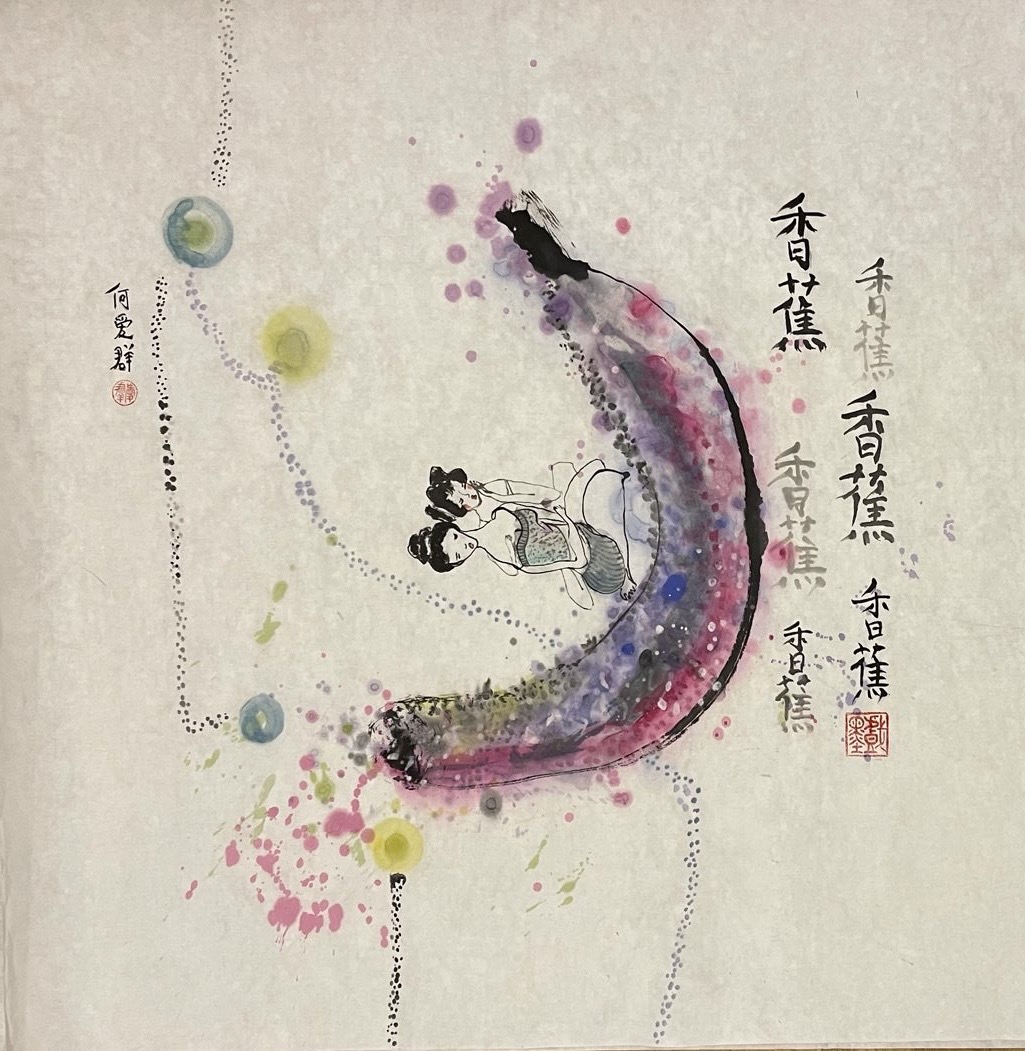 香蕉
香蕉
香蕉
香蕉
香蕉
香蕉
何愛群